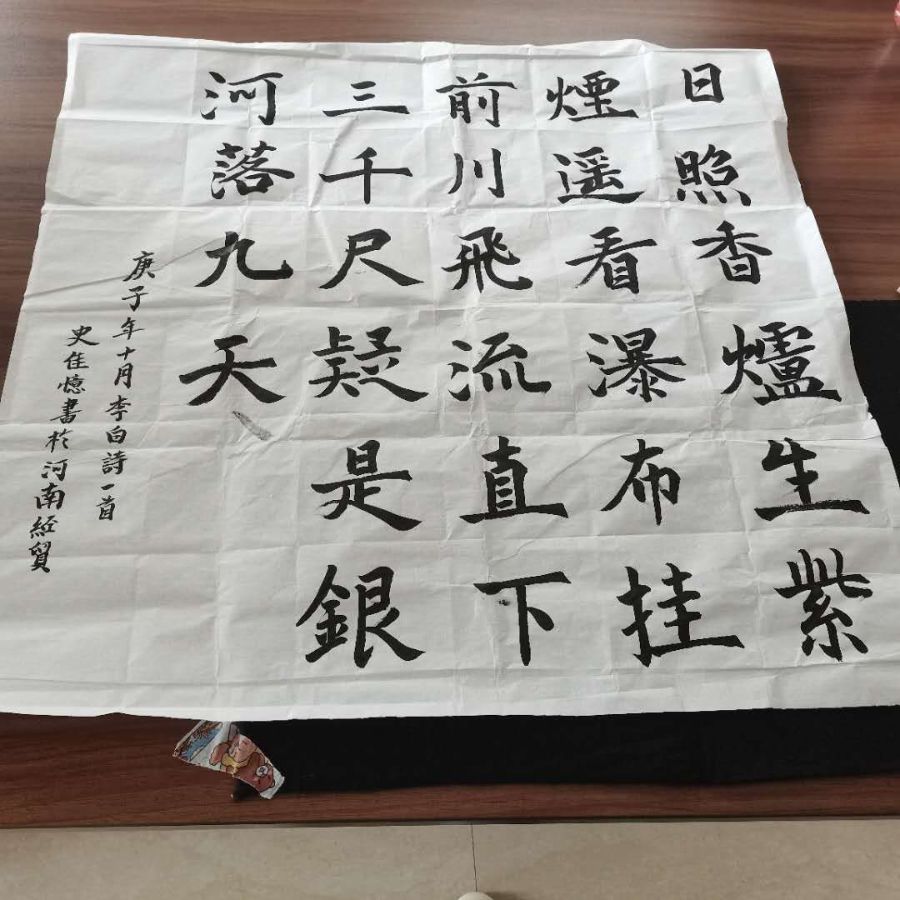 日照香爐生紫
煙遥看瀑布挂
前川飛流直下
三千尺疑是銀
河落九天
庚子年十月李白詩一首
史佳憶書於河南經貿